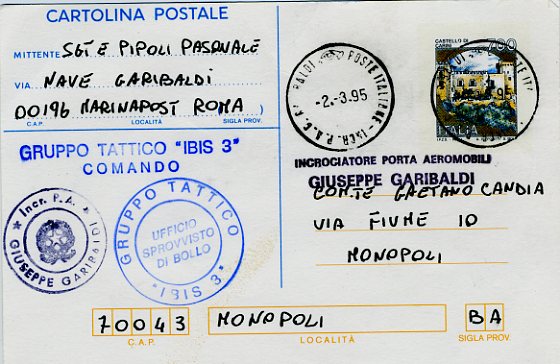 CARTOLINA POSTALE
MITTENTE SGT E PIPOLI PASQUALE
VIA NAVE GARIBALDI
00196 MARINAPOST ROMA )
C.A.P. LOCALITÀ SIGLA PROV.
GRUPPO TATTICO "IBIS 3"
COMANDO
Incr. P.A.
GIUSEPPE GARIBALDI
GRUPPO TATTICO
UFFICIO
SPROVVISTO
DI BOLLO
"IBIS 3"
POSTE ITALIANE - INCR. P.A.
-2.-3.95
CASTELLO DI
700
ITALIA
INCROCIATORE PORTA AEROMOBILI
GIUSEPPE GARIBALDI
COM.TE GAETANO CANDIA
VIA FIUME 10
MONOPOLI
70043 MONOPOLI BA
C.A.P. LOCALITÀ SIGLA PROV.